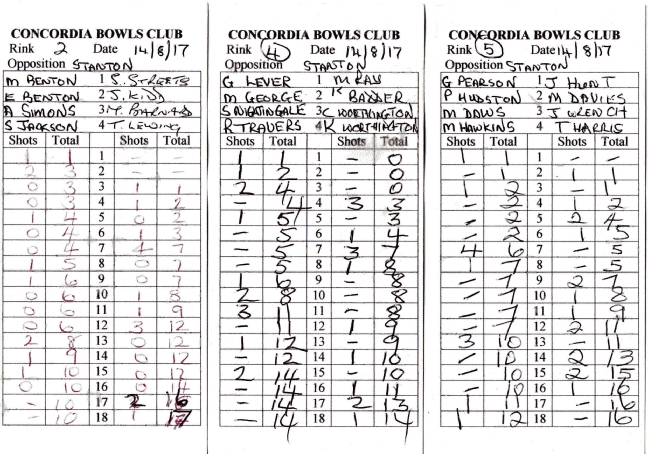 CONCORDIA BOWLS CLUB
Rink 2 Date 14/8/17
Opposition STANTON
M BENTON 1 S. STREETS
E BENTON 2 J. KIDD
A SIMONS 3 M. BARNARD
S JACKSON 4 T. LEWING
Shots Total Shots Total
1 1 1 - -
2 3 2 - -
0 3 3 1 1
0 3 4 1 2
1 4 5 0 2
0 4 6 1 3
0 4 7 4 7
1 5 8 0 7
1 6 9 0 7
0 6 10 1 8
0 6 11 1 9
0 6 12 3 12
2 8 13 0 12
1 9 14 0 12
1 10 15 0 12
0 10 16 0 14
- 10 17 2 16
- 10 18 1 17
CONCORDIA BOWLS CLUB
Rink 4 Date 14/8/17
Opposition STANTON
G LEVER 1 M RAW
M GEORGE 2 K BADDER
S NIGHTINGALE 3 C WORTHINGTON
R TRAVERS 4 K WORTHINGTON
Shots Total Shots Total
1 1 1 - 0
1 2 2 - 0
2 4 3 - 0
- 4 4 3 3
1 5 5 - 3
- 5 6 1 4
- 5 7 3 7
- 5 8 1 8
1 6 9 - 8
2 8 10 - 8
3 11 11 - 8
- 11 12 1 9
1 12 13 - 9
- 12 14 1 10
2 14 15 - 10
- 14 16 1 11
- 14 17 2 13
- 14 18 1 14
CONCORDIA BOWLS CLUB
Rink 5 Date 14/8/17
Opposition STANTON
G PEARSON 1 J HUNT
P HUDSTON 2 M DAVIES
M DAWS 3 J WRENCH
M HAWKINS 4 T HARRIS
Shots Total Shots Total
1 1 1 - -
- 1 2 1 1
1 2 3 - 1
- 2 4 1 2
- 2 5 2 4
- 2 6 1 5
4 6 7 - 5
1 7 8 - 5
- 7 9 2 7
- 7 10 1 8
- 7 11 1 9
- 7 12 2 11
3 10 13 - 11
- 10 14 2 13
- 10 15 2 15
- 10 16 1 16
1 11 17 - 16
1 12 18 - 16